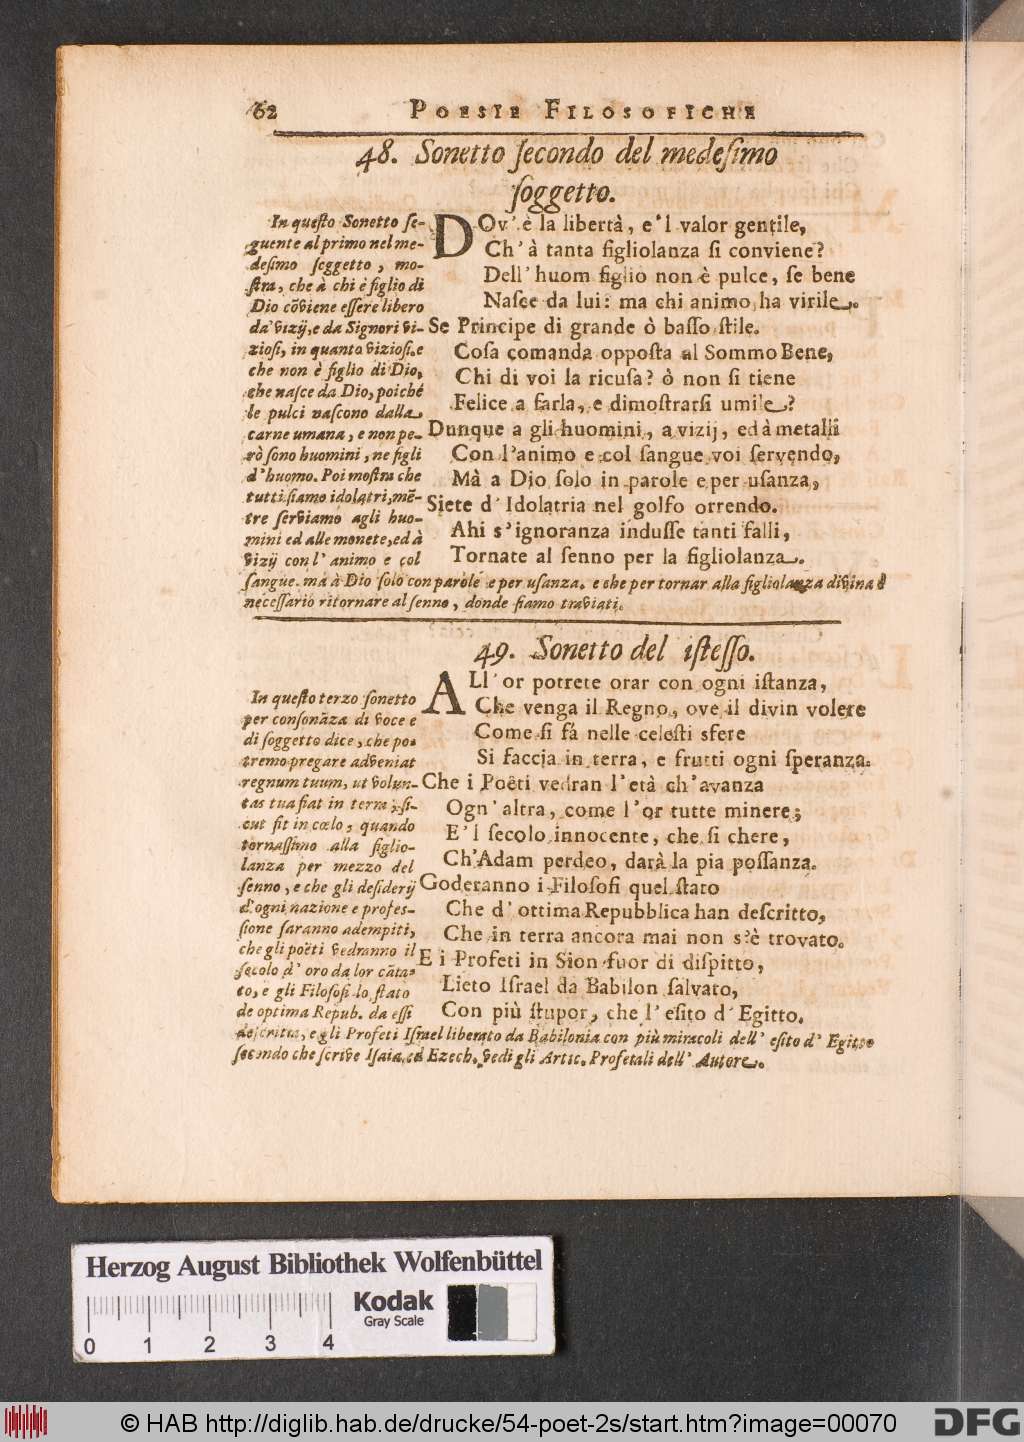 62
POESIE FILOSOFICHE
48. Sonetto ſecondo del medeſimo
ſoggetto.
In queſto Sonetto ſe-
guente al primo nel me-
deſimo ſoggetto, mo-
ſtra, che à chi è figlio di
Dio cõviene eſſere libero
da' vizij, e da Signori vi-
zioſi, in quanto vizioſi. e
che non è figlio di Dio,
che naſce da Dio, poiché
le pulci naſcono dalla
carne umana, e non pe-
rò ſono huomini, ne figli
d'huomo. Poi moſtra che
tutti ſiamo idolatri, mẽ-
tre ſerviamo agli huo-
mini ed alle monete, ed à
vizij con l'animo e col
ſangue. mà à Dio ſolo con parole e per uſanza. e che per tornar alla figliolanza divina è
neceſſario ritornare al ſenno, donde ſiamo traviati.
DOv' è la libertà, e'l valor gentile,
Ch' à tanta figliolanza ſi conviene?
Dell' huom figlio non è pulce, ſe bene
Naſce da lui: ma chi animo ha virile.
Se Principe di grande ò baſſo ſtile.
Coſa comanda oppoſta al Sommo Bene,
Chi di voi la ricuſa? ò non ſi tiene
Felice a farla, e dimoſtrarſi umile?
Dunque a gli huomini, a vizij, ed à metalli
Con l'animo e col ſangue voi ſervendo,
Mà a Dio ſolo in parole e per uſanza,
Siete d' Idolatria nel golfo orrendo.
Ahi s'ignoranza induſſe tanti falli,
Tornate al ſenno per la figliolanza.
49. Sonetto del iſteſſo.
In queſto terzo ſonetto
per conſonãza di voce e
di ſoggetto dice, che po-
tremo pregare adveniat
regnum tuum, ut volun-
tas tua fiat in terra, ſi-
cut fit in cœlo, quando
tornaſſimo alla figlio-
lanza per mezzo del
ſenno, e che gli deſiderij
d'ogni nazione e profes-
ſione ſaranno adempiti,
che gli poëti vedranno il
ſecolo d' oro da lor cãta-
to, e gli Filoſofi lo ſtato
de optima Repub. da eſſi
deſcritta, e gli Profeti Iſrael liberato da Babilonia con più miracoli dell' eſito d' Egitto
ſecondo che ſcrive Iſaia, ed Ezech. vedi gli Artic. Profetali dell' Autore.
ALl' or potrete orar con ogni iſtanza,
Che venga il Regno, ove il divin volere
Come ſi fà nelle celeſti sfere
Si faccia in terra, e frutti ogni ſperanza.
Che i Poëti vedran l'età ch'avanza
Ogn' altra, come l'or tutte minere;
E'l ſecolo innocente, che ſi chere,
Ch'Adam perdeo, darà la pia poſſanza.
Goderanno i Filoſofi quel ſtato
Che d' ottima Repubblica han deſcritto,
Che in terra ancora mai non s'è trovato.
E i Profeti in Sion fuor di diſpitto,
Lieto Iſrael da Babilon ſalvato,
Con più ſtupor, che l' eſito d' Egitto.
Herzog August Bibliothek Wolfenbüttel
Kodak
Gray Scale
0 1 2 3 4
© HAB http://diglib.hab.de/drucke/54-poet-2s/start.htm?image=00070
DFG